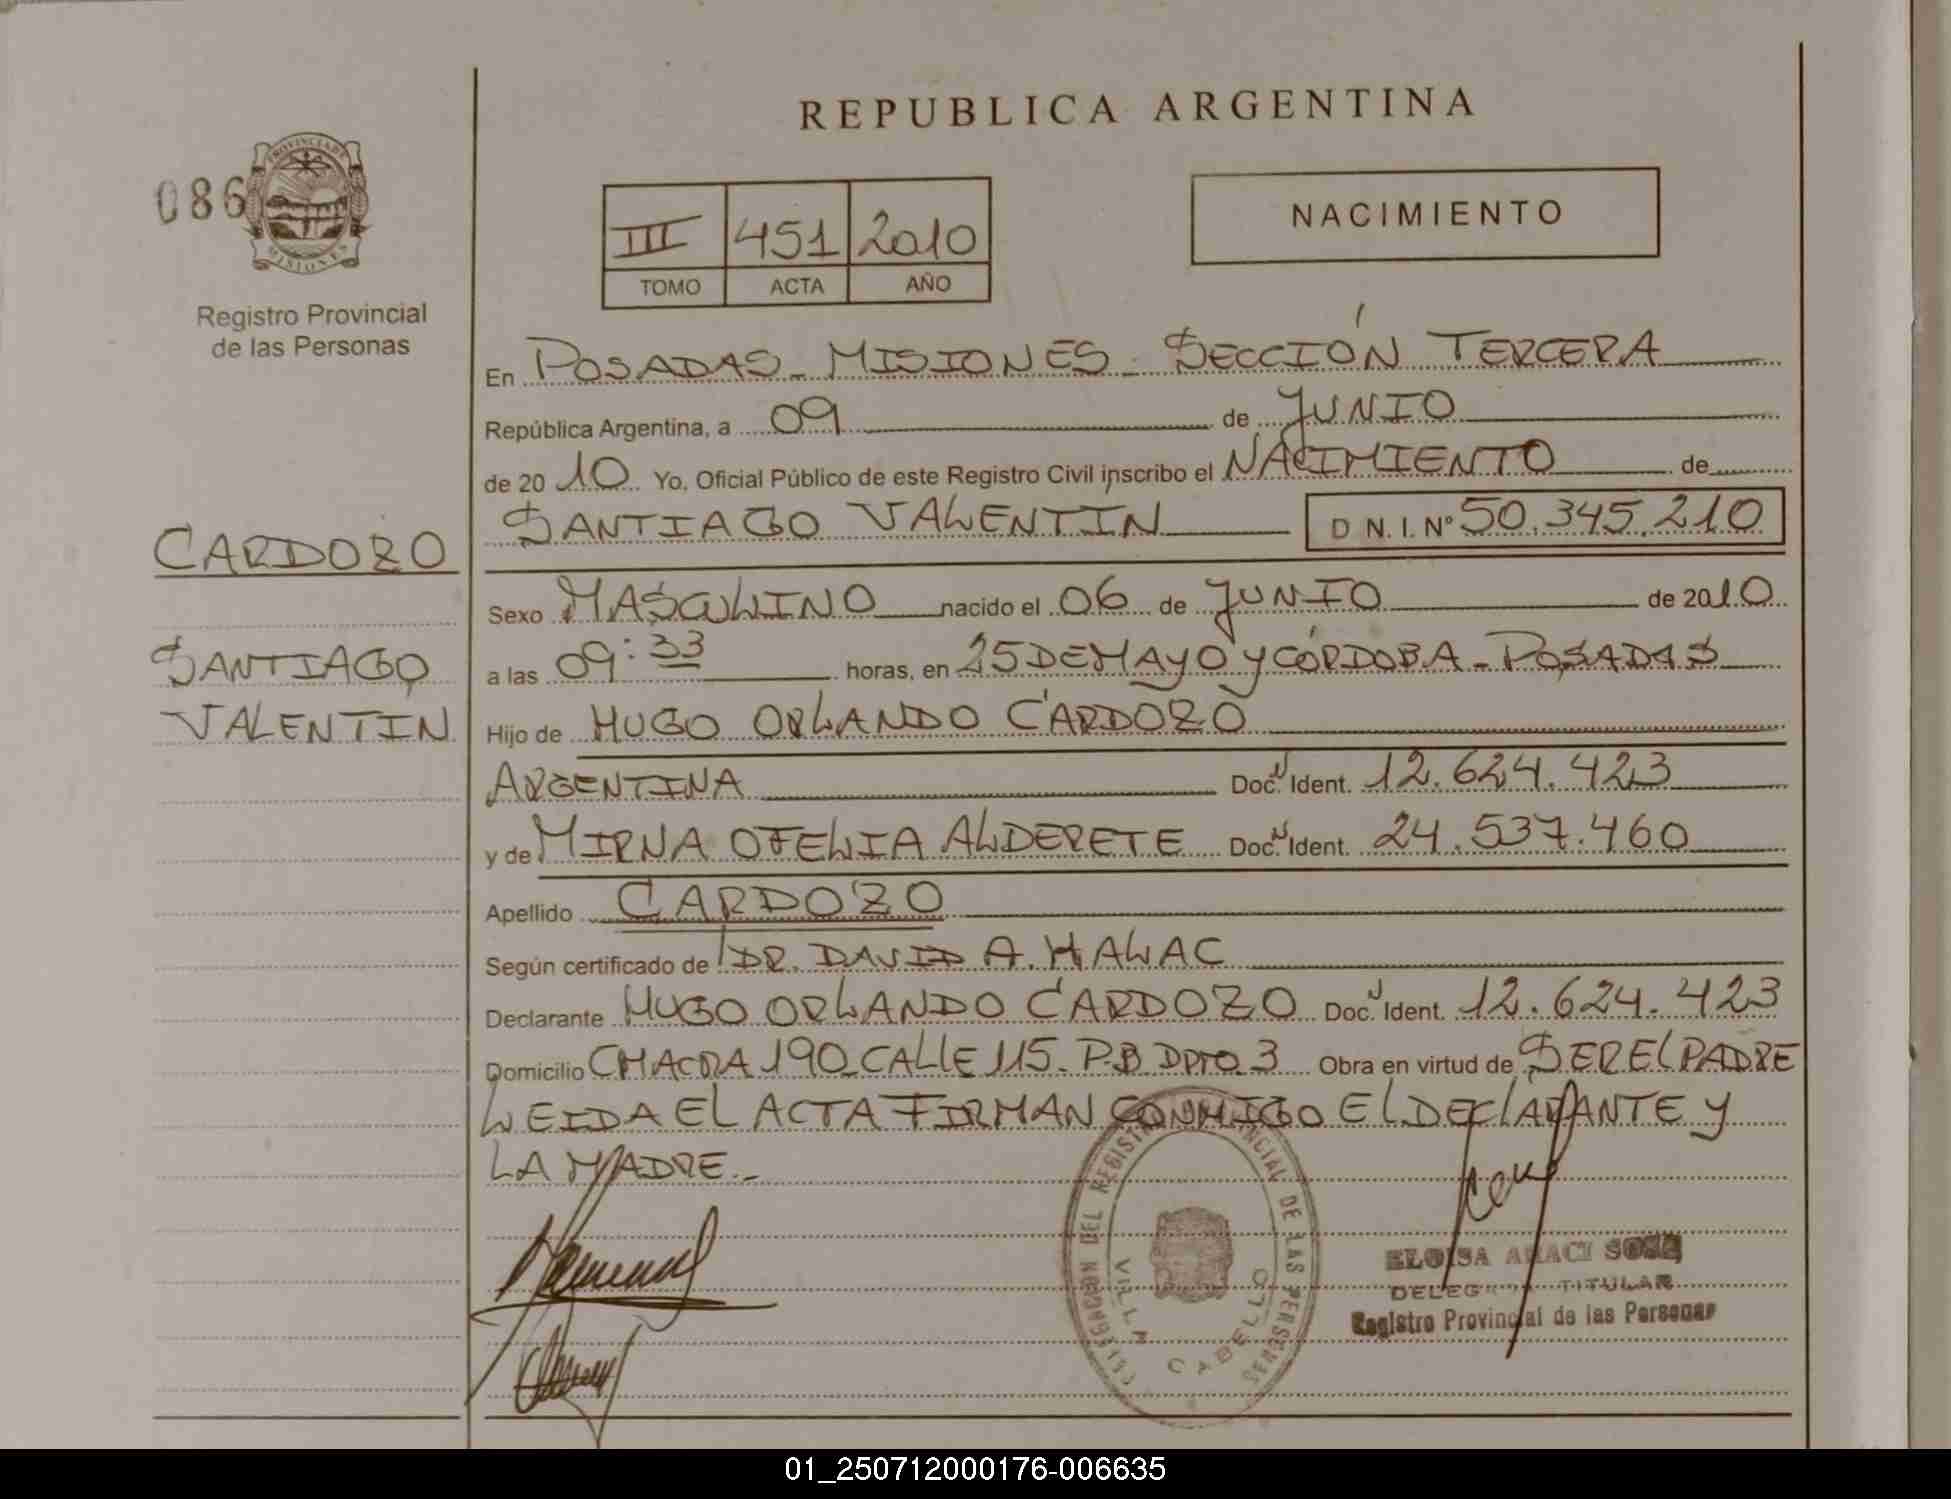 REPUBLICA ARGENTINA
086
PROVINCIA DE MISIONES
Registro Provincial
de las Personas
III 451 2010
TOMO ACTA AÑO
NACIMIENTO
En POSADAS - MISIONES - SECCIÓN TERCERA
República Argentina, a 09 de JUNIO
de 2010 Yo, Oficial Público de este Registro Civil inscribo el NACIMIENTO de
SANTIAGO VALENTIN D N. I. N° 50.345.210
CARDOZO
SANTIAGO
VALENTIN
Sexo MASCULINO nacido el 06 de JUNIO de 2010
a las 09:33 horas, en 25 DE MAYO Y CÓRDOBA - POSADAS
Hijo de HUGO ORLANDO CARDOZO
ARGENTINA Doc. Ident. 12.624.423
y de MIRNA OFELIA ALDERETE Doc. Ident. 24.537.460
Apellido CARDOZO
Según certificado de DR. DAVID A. HALAC
Declarante HUGO ORLANDO CARDOZO Doc. Ident. 12.624.423
Domicilio CHACRA 190 CALLE 115. P.B DPTO. 3 Obra en virtud de SER EL PADRE
LEIDA EL ACTA FIRMAN CONMIGO EL DECLARANTE Y
LA MADRE.-
DELEGACION DEL REGISTRO PROVINCIAL DE LAS PERSONAS
VILLA CABELLO
ELOISA ARACI SOSA
DELEGADA TITULAR
Registro Provincial de las Personas
01_250712000176-006635